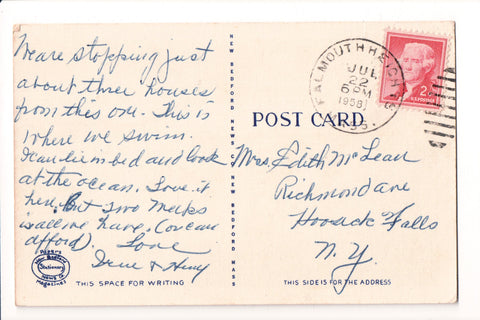 We are stopping just
about three houses
from this one. This is
where we swim.
I can lie in bed and look
at the ocean. Love it
here. But two weeks
is all we have. Can
afford. Love
Irene & Henry
THIS SPACE FOR WRITING
NEW BEDFORD NEWS CO. NEW BEDFORD MASS
FALMOUTH HEIGHTS
JUL
22
6 PM
1958
MASS.
2¢
POST CARD
Mrs. Edith McLean
Richmond ave
Hoosick Falls
N.Y.
THIS SIDE IS FOR THE ADDRESS
Stationery
Magazines